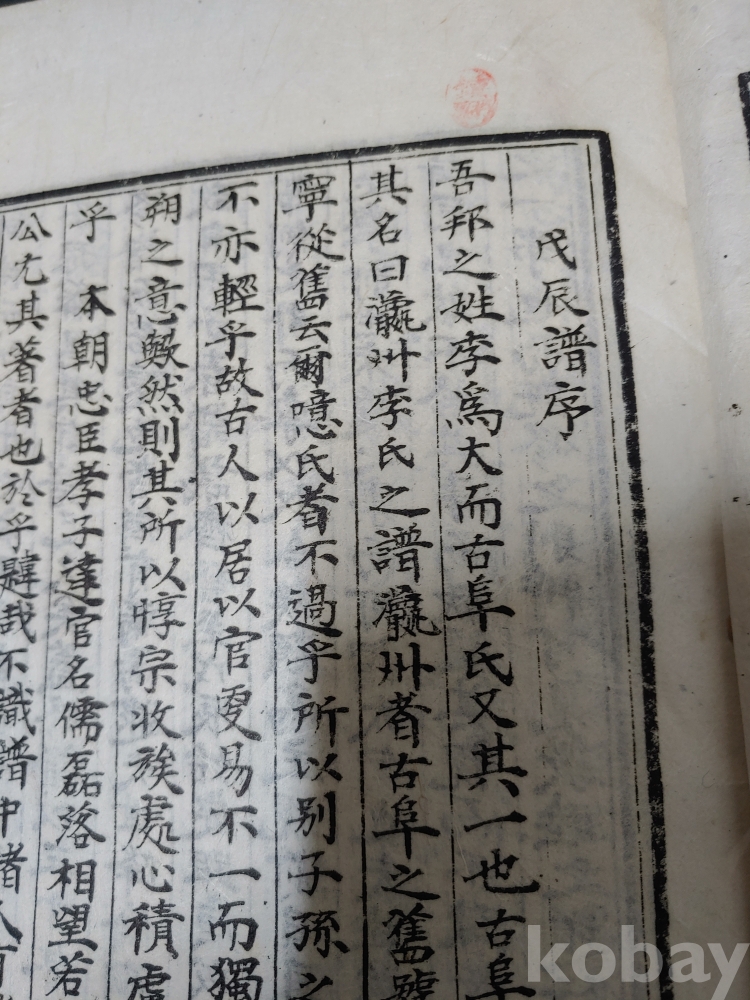 戊辰譜序
吾邦之姓李爲大而古阜氏又其一也古阜
其名曰瀛州李氏之譜瀛州者古阜之舊號
寧從舊云爾噫氏者不過乎所以別子孫之
不亦輕乎故古人以居以官更易不一而獨
朔之意歟然則其所以惇宗收族處心積慮
乎 本朝忠臣孝子達官名儒磊落相望若
公尤其著者也於乎韙哉不識譜中諸人有
kobay